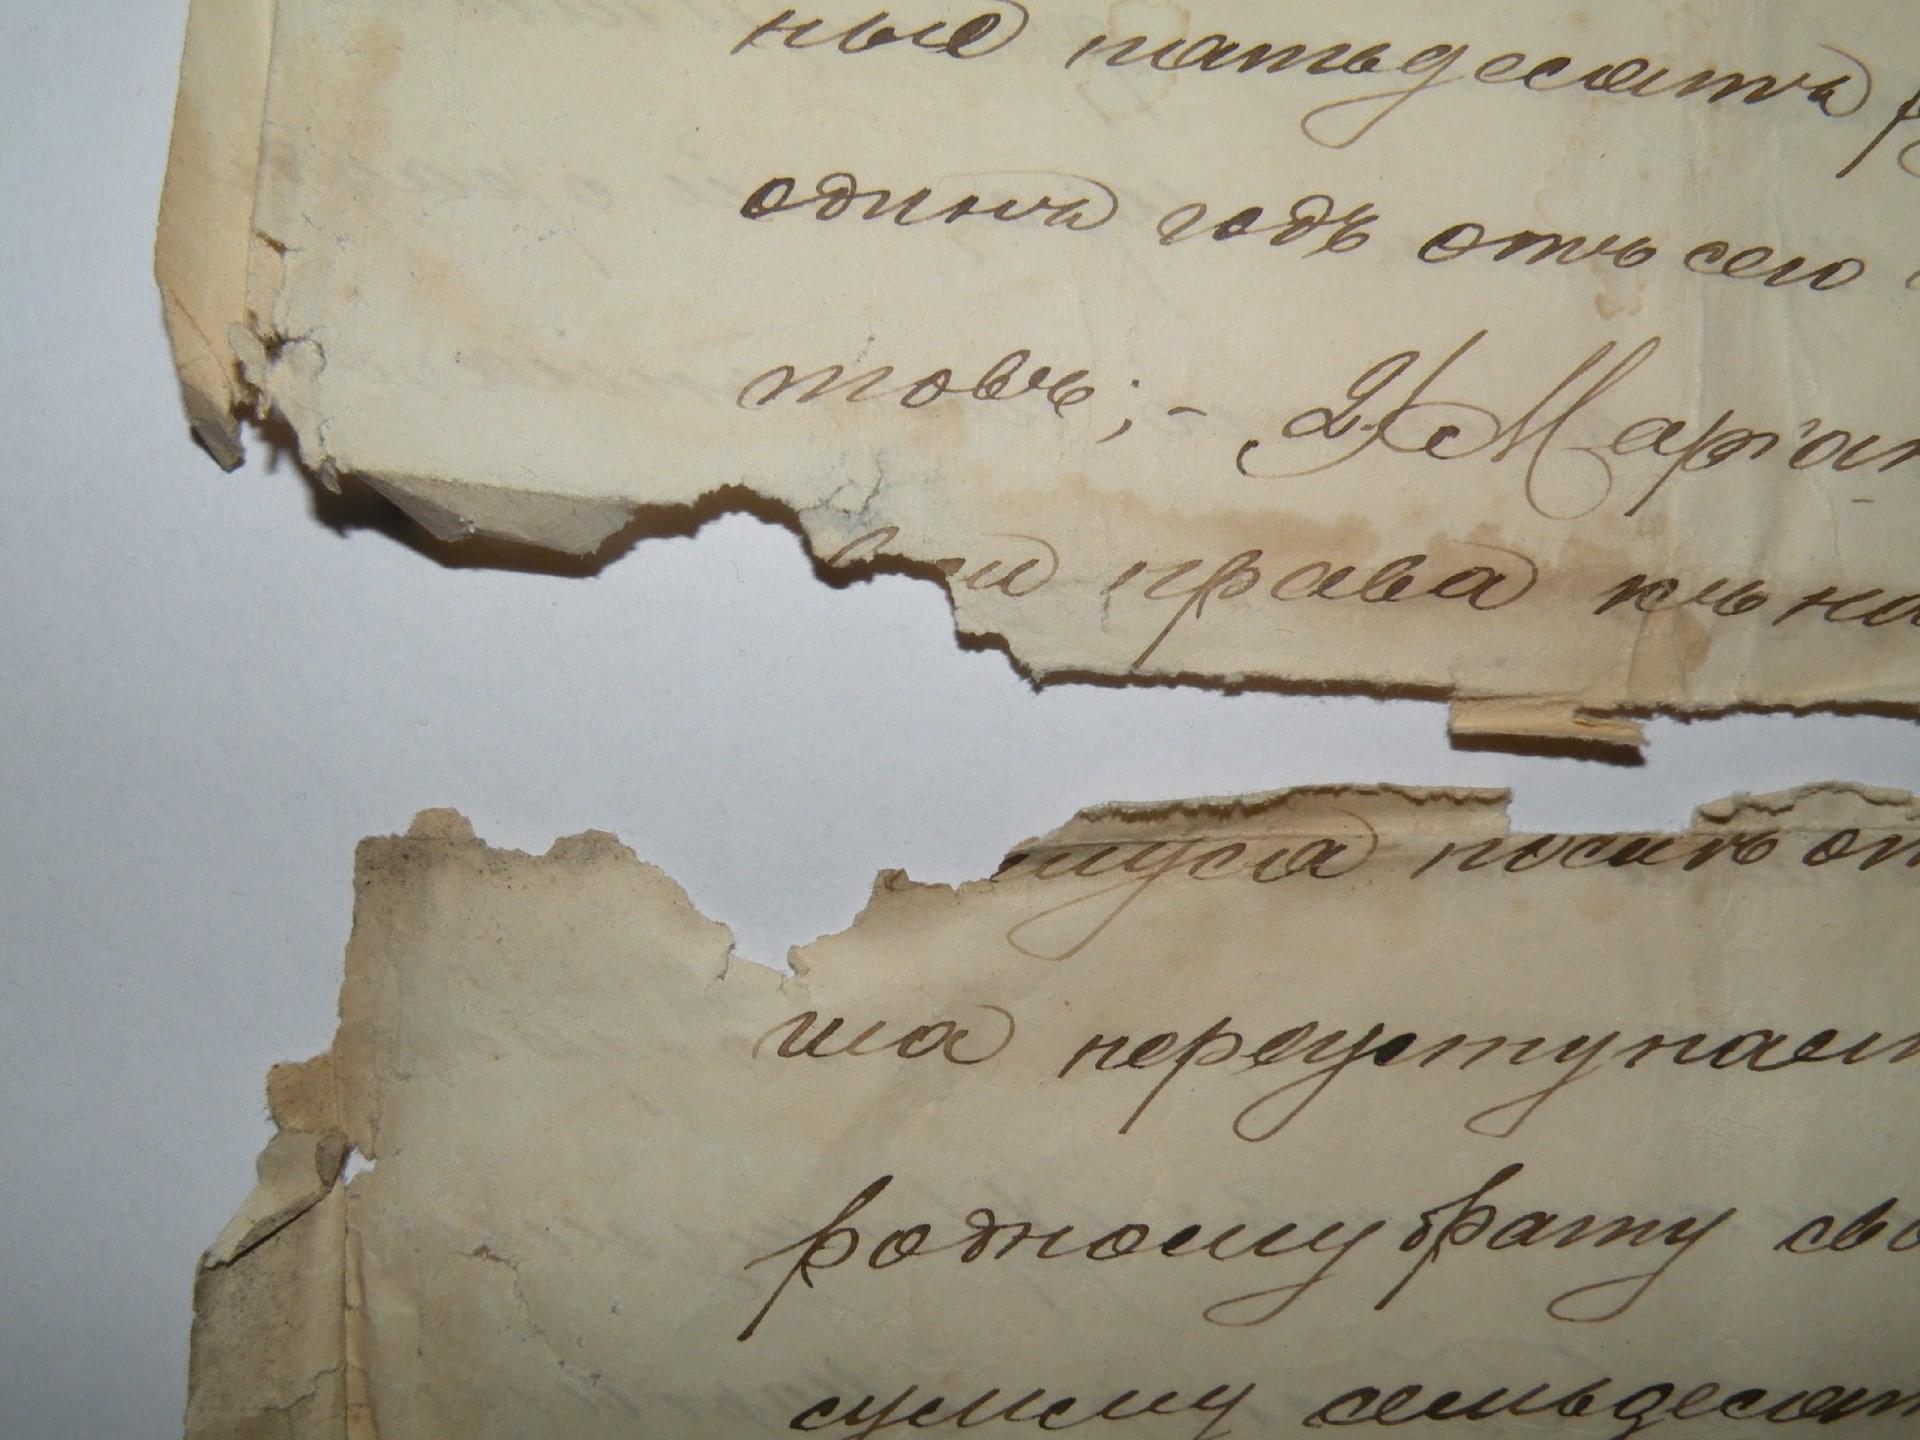 ные пятьдесятъ р
одинъ годъ отъ сего
товъ; - 2/ Маріан
вои права къ на
муса посиъ от
ша переуступает
родному брату сво
сумму семьдесят